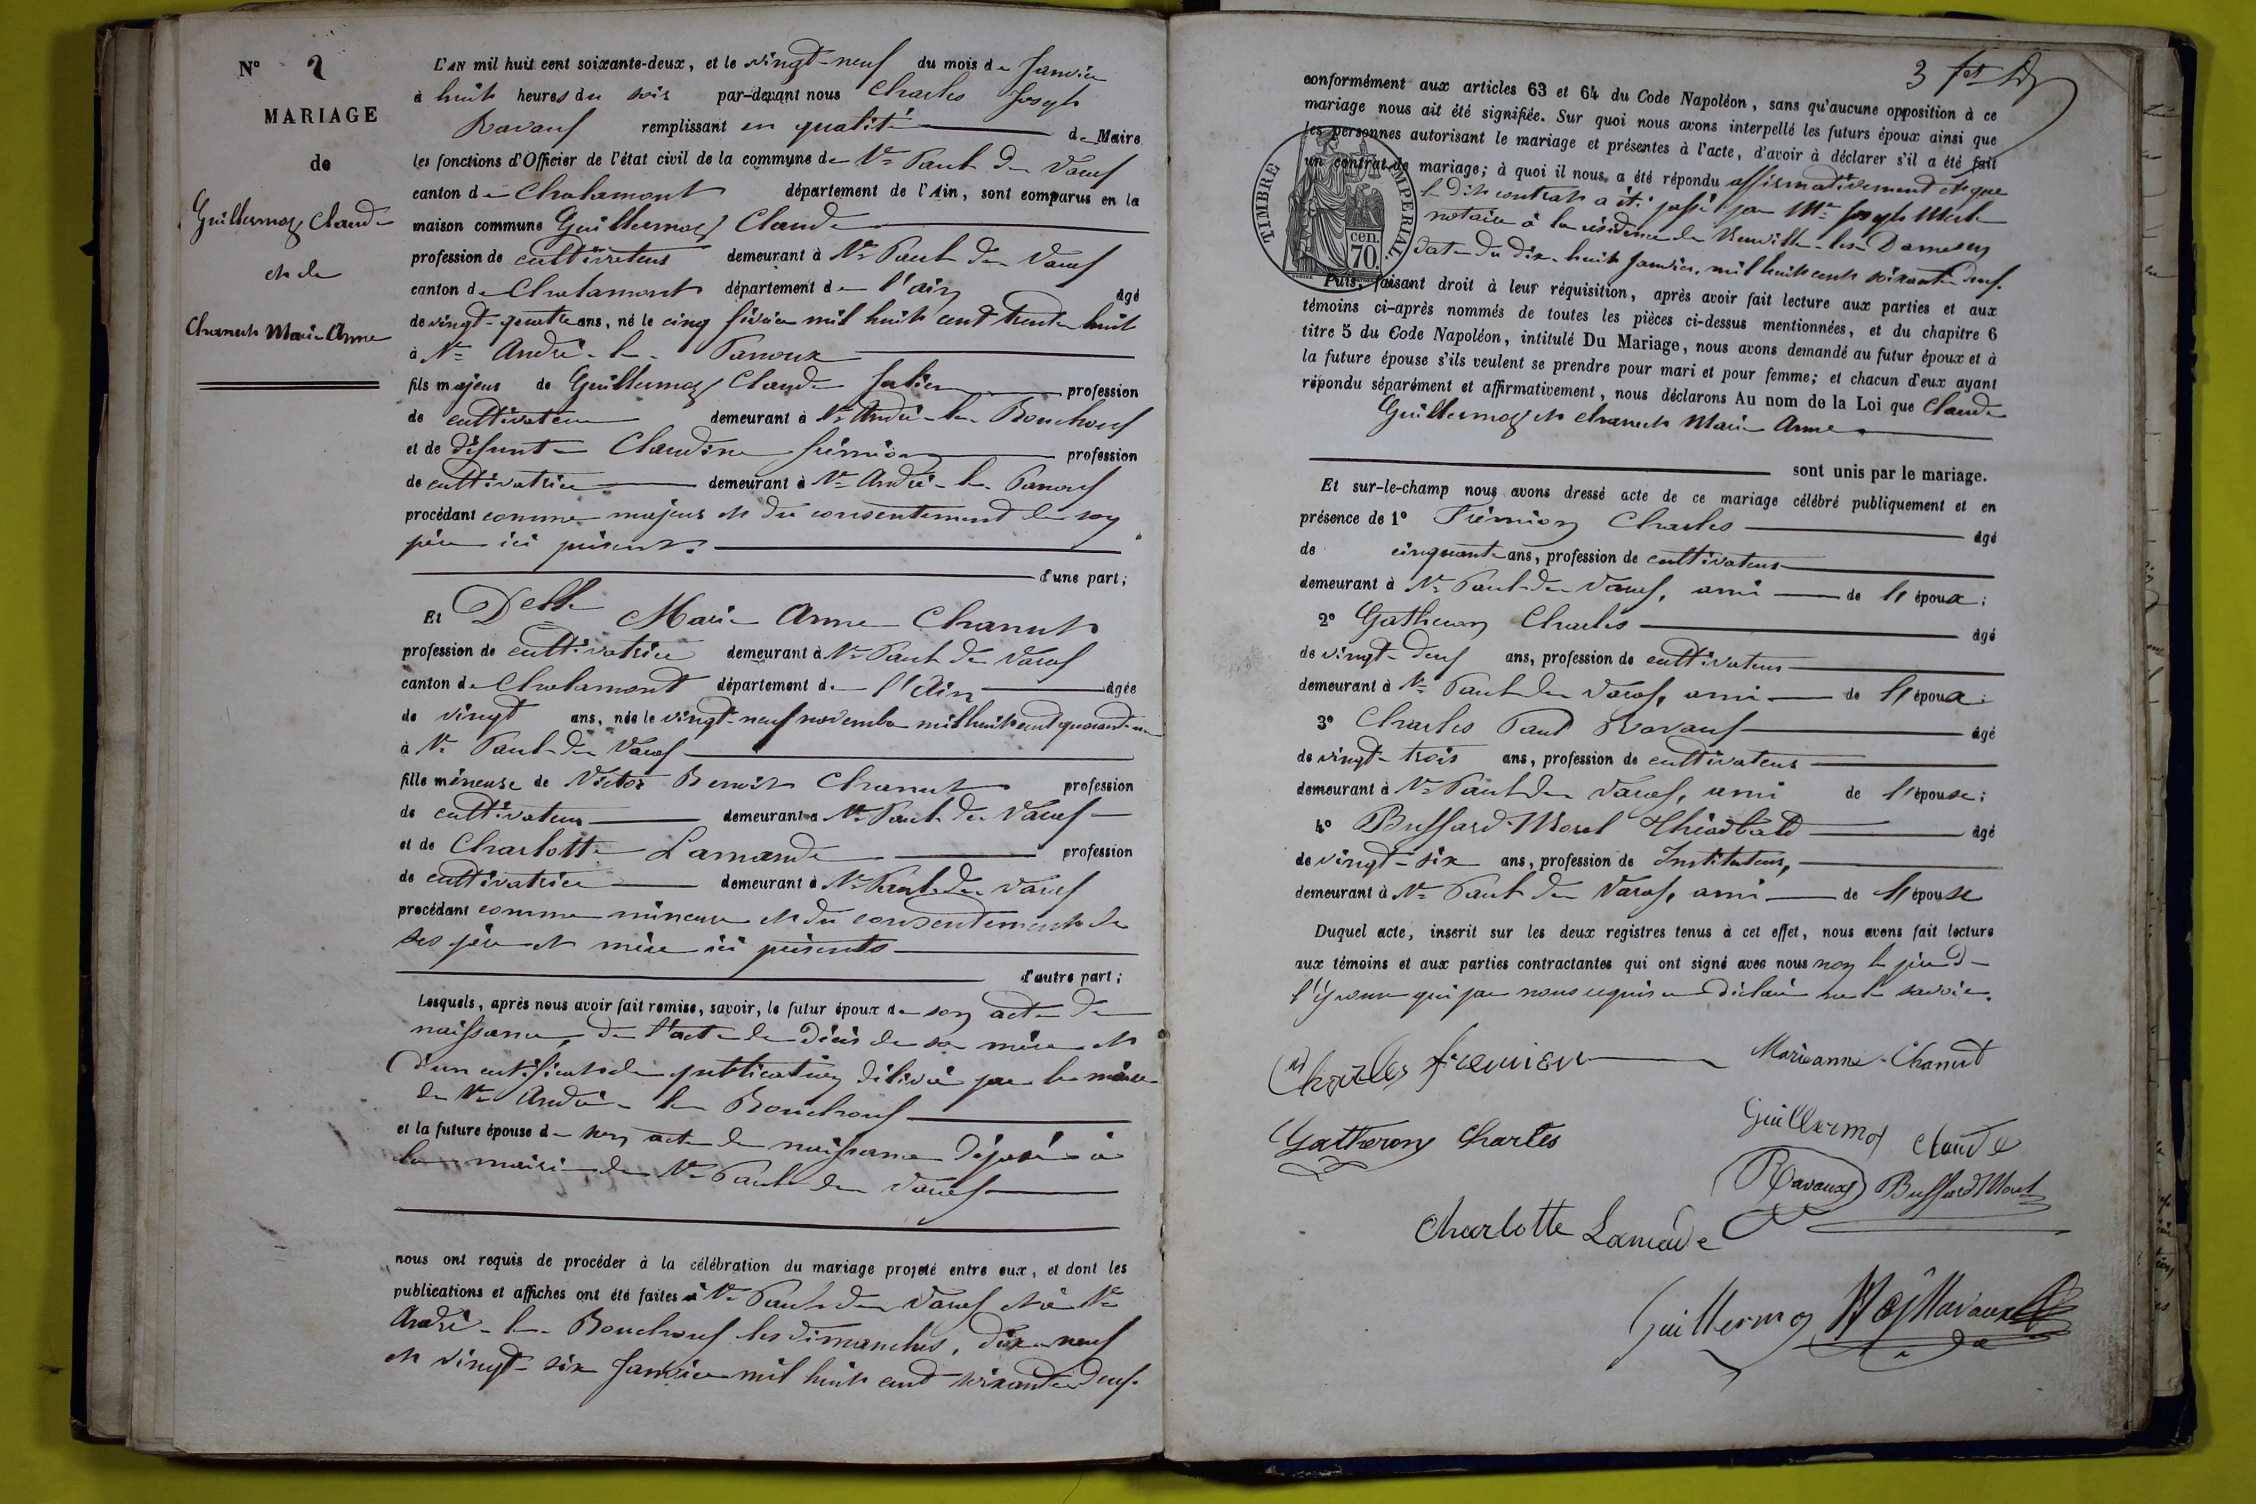 N° 2
MARIAGE
de
Guillermoz Claude
et de
Chanut Marie Anne
L'AN mil huit cent soixante-deux, et le vingt-neuf du mois de Janvier
à huit heures du soir par-devant nous Charles Joseph
Ravaux remplissant en qualité de Maire
les fonctions d'Officier de l'état civil de la commune de St Paul de Varax
canton de Chalamont département de l'Ain, sont comparus en la
maison commune Guillermoz Claude
profession de cultivateur demeurant à St Paul de Varax
canton de Chalamont département de l'ain âgé
de vingt-quatre ans, né le cinq février mil huit cent trente huit
à St André-le-Panoux
fils majeur de Guillermoz Claude Julien profession
de cultivateur demeurant à St André-le-Bouchoux
et de défunte Claudine frémion profession
de cultivatrice demeurant à St André-le-Panoux
procédant comme majeur et du consentement de son
père ici présent.
d'une part;
Et Delle Marie Anne Chanut
profession de cultivatrice demeurant à St Paul de Varax
canton de Chalamont département de l'Ain âgée
de vingt ans, née le vingt-neuf novembre mil huit cent quarante un
à St Paul de Varax
fille mineure de Victor Benoit Chanut profession
de cultivateur demeurant à St Paul de Varax
et de Charlotte Lamande profession
de cultivatrice demeurant à St Paul de Varax
procédant comme mineure et du consentement de
ses père et mère ici présents
d'autre part;
Lesquels, après nous avoir fait remise, savoir, le futur époux de son acte de
naissance, de l'acte de décès de sa mère et
d'un certificat de publication délivré par le maire
de St André-le-Bouchoux
et la future épouse de son acte de naissance déposé à
la mairie de St Paul de Varax
nous ont requis de procéder à la célébration du mariage projeté entre eux, et dont les
publications et affiches ont été faites à St Paul de Varax et à St
André-le-Bouchoux les dimanches, dix-neuf
et vingt-six Janvier mil huit cent soixante deux.
3
conformément aux articles 63 et 64 du Code Napoléon, sans qu'aucune opposition à ce
mariage nous ait été signifiée. Sur quoi nous avons interpellé les futurs époux ainsi que
les personnes autorisant le mariage et présentes à l'acte, d'avoir à déclarer s'il a été fait
un contrat de mariage; à quoi il nous a été répondu affirmativement et que
le dit contrat a été passé par Me Joseph
notaire à la résidence de Neuville-les-Dames en
date du dix-huit Janvier, mil huit cent soixante deux.
TIMBRE IMPERIAL.
70 cen.
Puis, faisant droit à leur réquisition, après avoir fait lecture aux parties et aux
témoins ci-après nommés de toutes les pièces ci-dessus mentionnées, et du chapitre 6
titre 5 du Code Napoléon, intitulé Du Mariage, nous avons demandé au futur époux et à
la future épouse s'ils veulent se prendre pour mari et pour femme; et chacun d'eux ayant
répondu séparément et affirmativement, nous déclarons Au nom de la Loi que Claude
Guillermoz et Chanut Marie Anne
sont unis par le mariage.
Et sur-le-champ nous avons dressé acte de ce mariage célébré publiquement et en
présence de 1° Frémion Charles âgé
de cinquante ans, profession de cultivateur
demeurant à St Paul de Varax, ami de l'époux;
2° Gatheron Charles âgé
de vingt-deux ans, profession de cultivateur
demeurant à St Paul de Varax, ami de l'époux;
3° Charles Paul Ravaux âgé
de vingt-trois ans, profession de cultivateur
demeurant à St Paul de Varax, ami de l'épouse;
4° Buffard-Morel Théodbald âgé
de vingt-six ans, profession de Instituteur,
demeurant à St Paul de Varax, ami de l'épouse
Duquel acte, inscrit sur les deux registres tenus à cet effet, nous avons fait lecture
aux témoins et aux parties contractantes qui ont signé avec nous non le père de
l'épouse qui par nous requis a déclaré ne le savoir.
Charles fremion
Marieanne Chanut
Guillermoz Claude
Gatheron Charles
Ravaux
Buffard Morel
Charlotte Lamade
Guillermoz
Ravaux